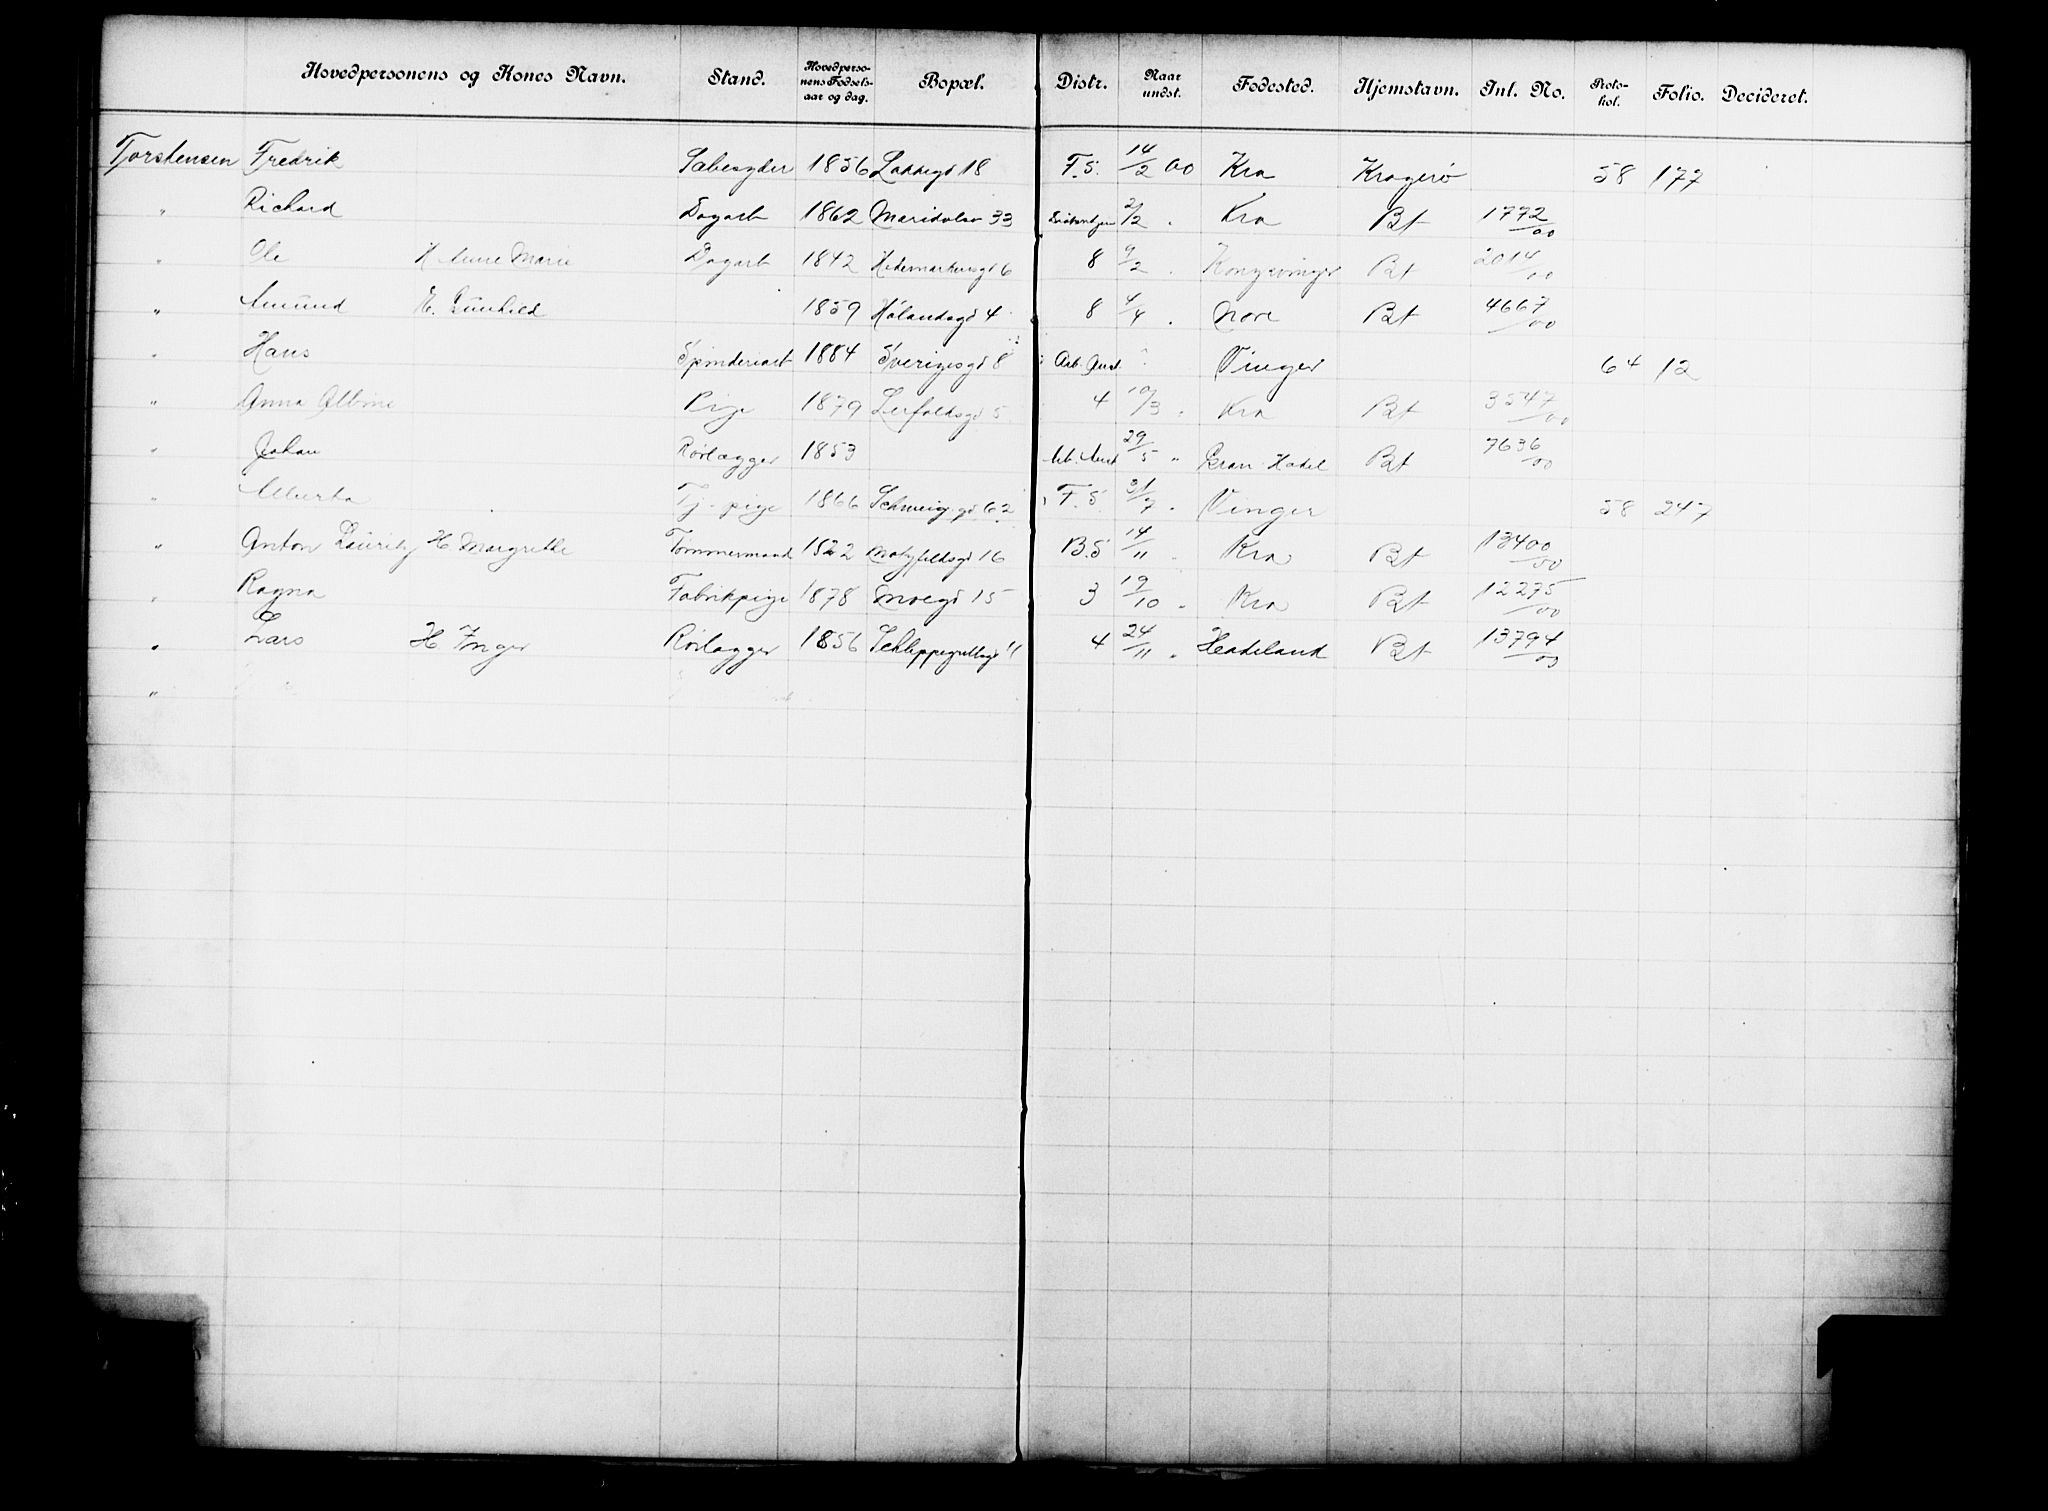 Hovedpersonens og Kones Navn. Stand. Hovedperso-nens Fødsels-aar og dag. Bopæl. Distr. Naar undst. Fødested. Hjemstavn. Inl. No. Proto-kol. Folio. Decideret.
Torstensen Fredrik Sæbesyder 1856 Lakkegd 18 F.S. 14/2 00 Kra Kragerø 58 177
" Richard Dagarb 1862 Maridalsv 33 2/2 " Kra Bt 1772/00
" Ole H Anne Marie Dagarb 1842 Hedemarkensgd 6 8 9/2 " Kongsvinger Bt 2014/00
" Amund H. Gunhild 1859 Hølandsgd 4 8 4/4 " Nore Bt 4667/00
" Hans Spinderiarb 1884 Sverigesgd 8 Arb. Anst. Vinger 64 12
" Anna Albine Pige 1879 Lerfaldsgd 5 4 10/3 " Kra Bt 3547/00
" Johan Rørlægger 1853 Arb. Anst 29/5 " Gran Hadel Bt 7636/00
" Alberta Tj. pige 1866 Schweigsgd 62 F.S. 31/7 " Vinger 58 247
" Anton Lauritz H. Margrethe Tømmermand 1822 Motzfeldsgd 16 B.S 14/11 " Kra Bt 13400/00
" Ragna Fabrikpige 1878 Moegd 15 3 19/10 " Kra Bt 12275/00
" Lars H Inger Rørlægger 1856 Schleppegrellsgd 11 4 24/11 " Hadeland Bt 13794/00
"